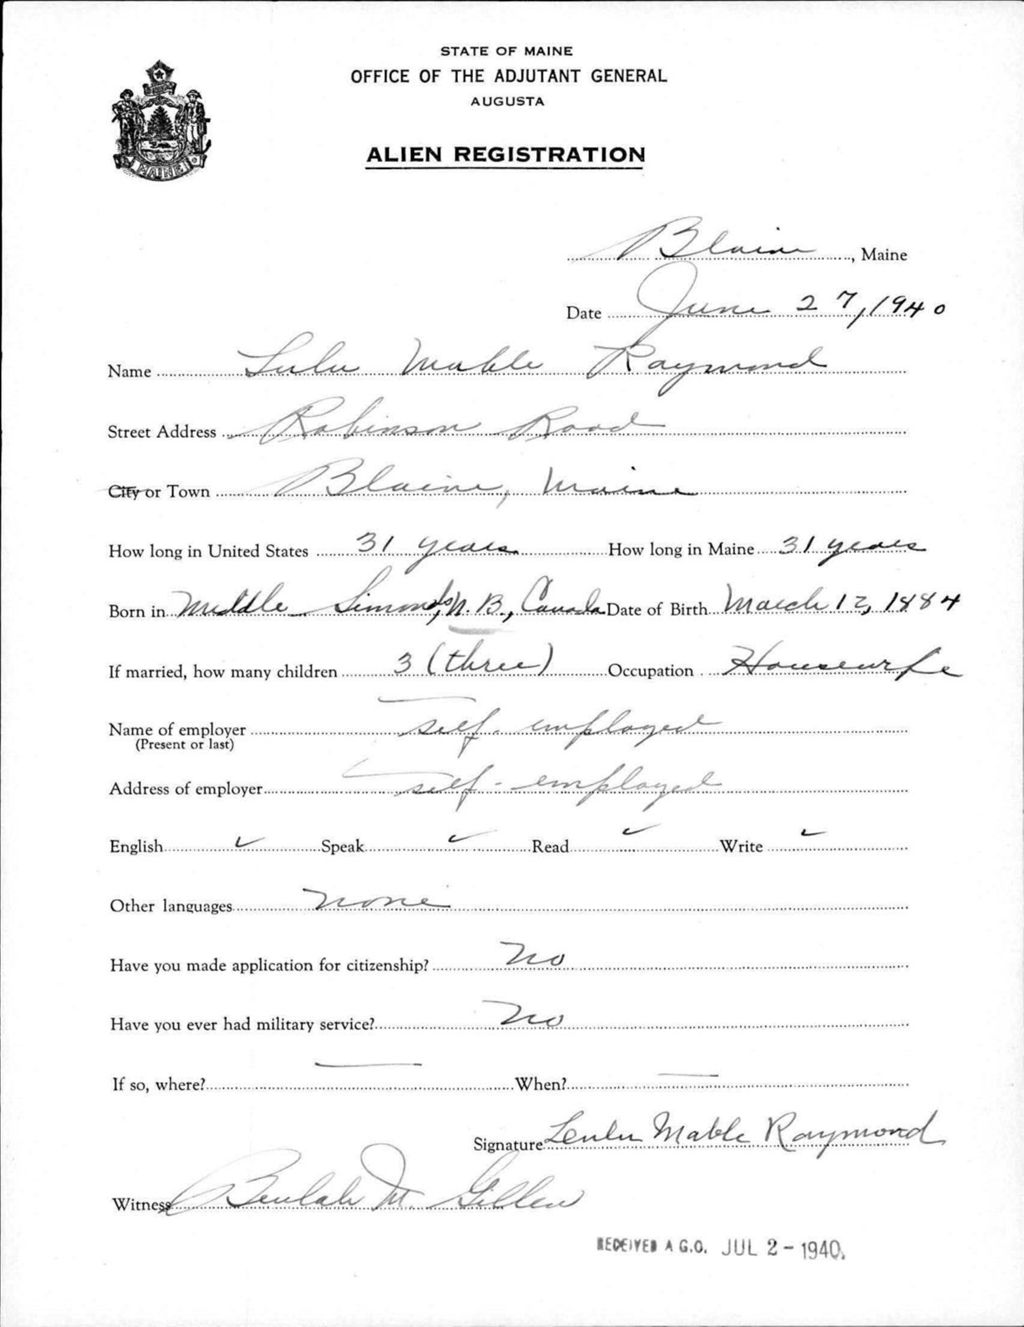 STATE OF MAINE
OFFICE OF THE ADJUTANT GENERAL
AUGUSTA
ALIEN REGISTRATION
MAINE
Blaine, Maine
Date June 27, 1940
Name Lulu Mable Raymond
Street Address Robinson Road
City or Town Blaine, Maine
How long in United States 31 years How long in Maine 31 years
Born in Middle Simonds, N.B., Canada Date of Birth March 12, 1884
If married, how many children 3 (three) Occupation Housewife
Name of employer self-employed
(Present or last)
Address of employer self-employed
English ✓ Speak ✓ Read ✓ Write ✓
Other languages none
Have you made application for citizenship? No
Have you ever had military service? No
If so, where? — When? —
Signature Lulu Mable Raymond
Witness Beulah M. Gillen
RECEIVED A.G.O. JUL 2 - 1940